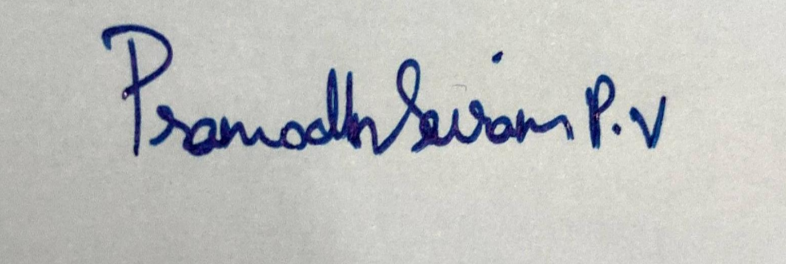 Pramodh Sairam P.V